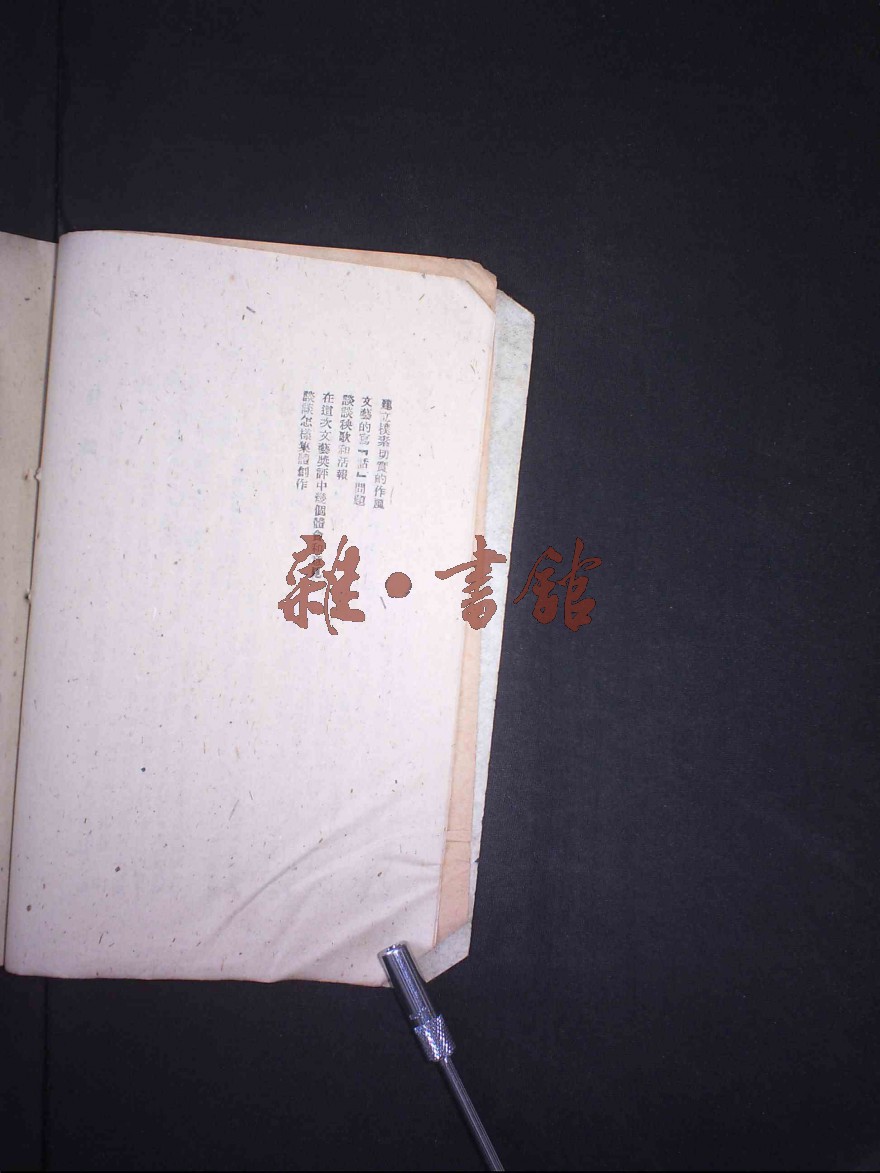 建立樸素切實的作風
文藝的寫『話』問題
談談秧歌和活報
在這次文藝獎評中幾個體會
談談怎樣集體創作
雜·書館